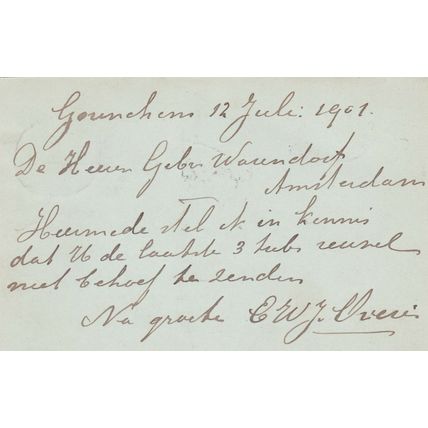 Gorinchem 12 Juli. 1901.
De Heeren Gebrs Warendorf
Amsterdam
Hiermede stel ik in kennis
dat U de laatste 3 tubs reusel
niet behoef te zenden
Na groete C W J.